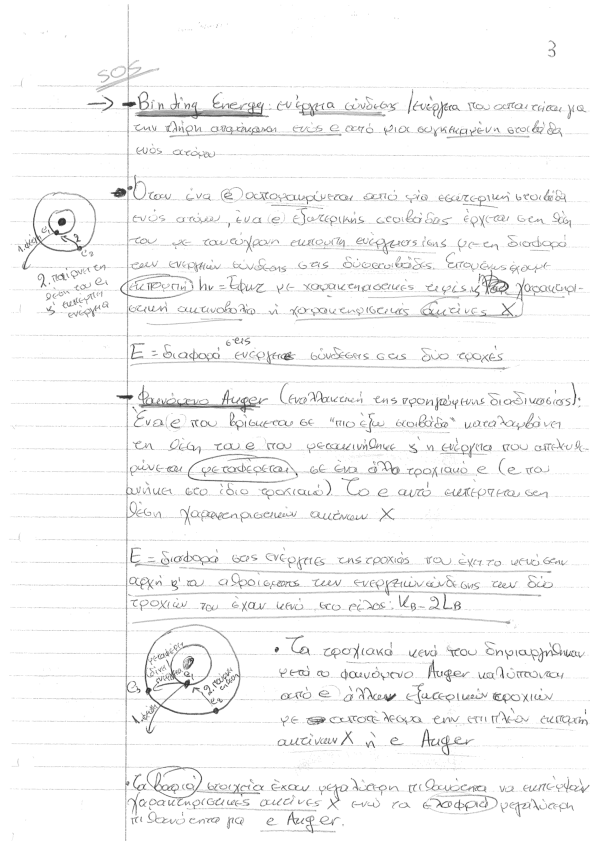 3
SOS
→ - Binding Energy: ενέργεια σύνδεσης / ενέργεια που απαιτείται για
την πλήρη απομάκρυνση ενός e από μια συγκεκριμένη στοιβάδα
ενός ατόμου
• Όταν ένα e απομακρύνεται από μία εσωτερική στοιβάδα
ενός ατόμου, ένα e εξωτερικής στοιβάδας έρχεται στη θέση
του με ταυτόχρονη εκπομπή ενέργειας ίσης με τη διαφορά
των ενεργειών σύνδεσης στις δύο στοιβάδες. Επομένως έχουμε
εκπομπή hν = Εφωτ με χαρακτηριστικές τιμές χαρακτηρι-
στική ακτινοβολία ή χαρακτηριστικές ακτίνες X
1. φεύγει
e1
2
e2
2. παίρνει τη
θέση του e1
ς' εκπέμπει
ενέργεια
E = διαφορά στις ενέργειες σύνδεσης στις δύο τροχιές
- Φαινόμενο Auger (εναλλακτική της προηγούμενης διαδικασίας):
Ένα e που βρίσκεται σε "πιο έξω στοιβάδα" καταλαμβάνει
τη θέση του e που μετακινήθηκε ς' η ενέργεια που απελευθ-
ερώνεται μεταφέρεται σε ένα άλλο τροχιακό e (e που
ανήκει στο ίδιο τροχιακό). Το e αυτό εκπέμπεται στη
θέση χαρακτηριστικών ακτίνων X
E = διαφορά στις ενέργειες της τροχιάς που έχει το κενό στην
αρχή ς' του αθροίσματος των ενεργειών σύνδεσης των δύο
τροχιών που έχουν κενό στο τέλος: KB - 2LB
e3
e1
e2
• Τα τροχιακά κενά που δημιουργήθηκαν
μετά το φαινόμενο Auger καλύπτονται
από e άλλων εξωτερικών τροχιών
με αποτέλεσμα την επιπλέον εκπομπή
ακτίνων X ή e Auger
• Τα βαριά στοιχεία έχουν μεγαλύτερη πιθανότητα να εκπέμψουν
χαρακτηριστικές ακτίνες X ενώ τα ελαφριά μεγαλύτερη
πιθανότητα για e Auger.